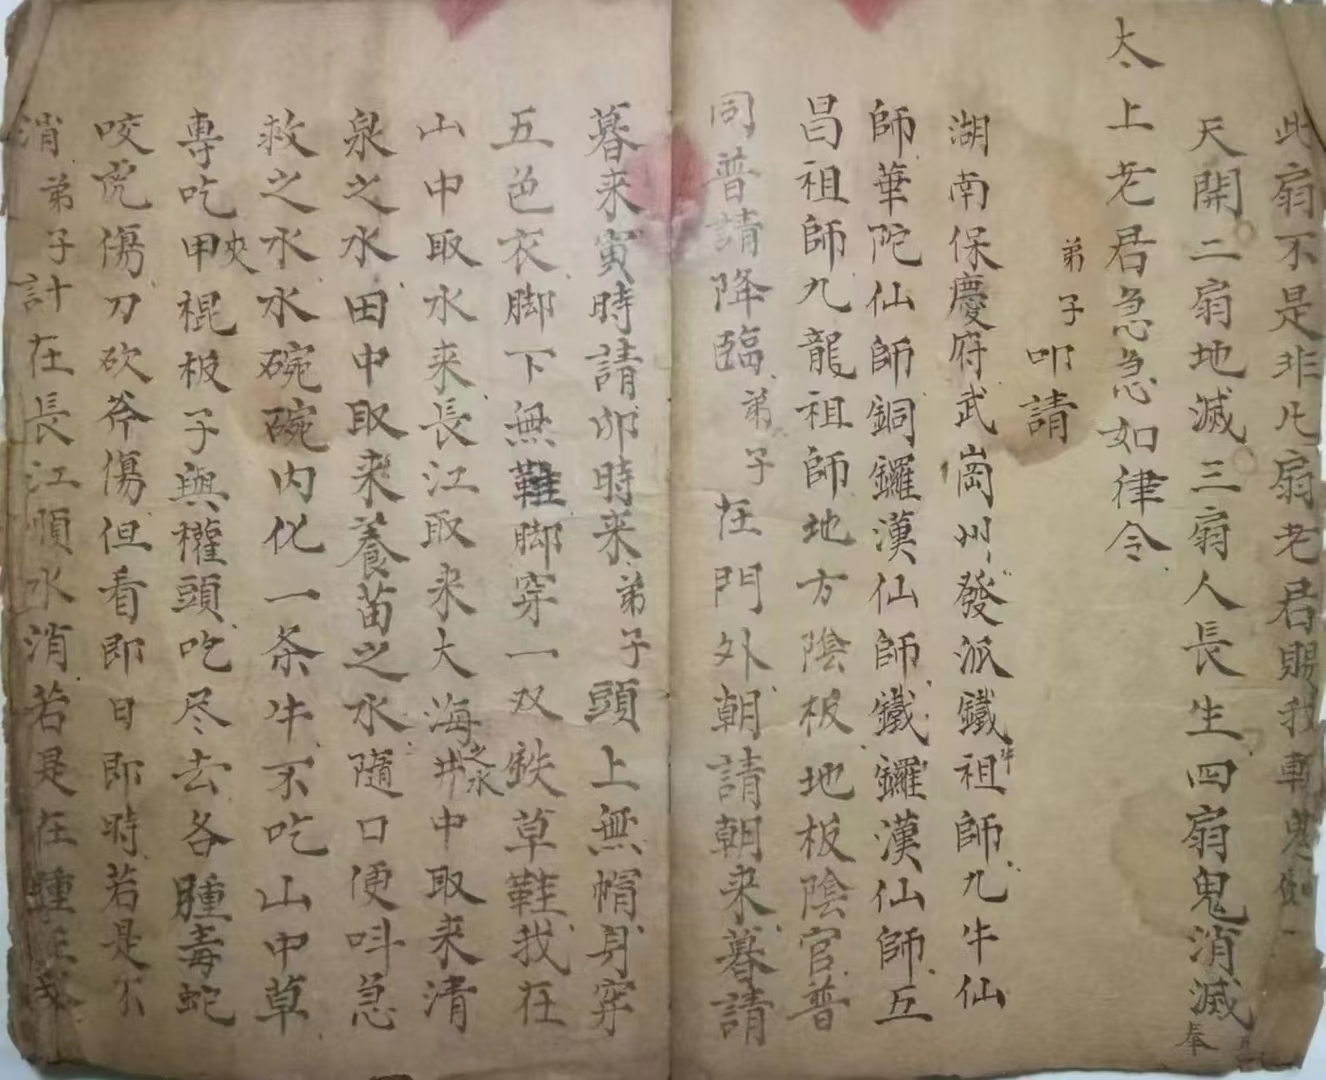 此扇不是非凡扇老君賜我斬鬼
天開二扇地滅三扇人長生四扇鬼消滅奉
太上老君急急如律令
弟子叩請
湖南保慶府武崗州發派鐵牛祖師九牛仙
師華陀仙師銅鑼漢仙師鐵鑼漢仙師五
昌祖師九龍祖師地方陰板地板陰官普
同普請降臨弟子在門外朝請朝来暮請
暮来寅時請卯時来弟子頭上無帽身穿
五色衣脚下無鞋脚穿一双鉄草鞋我在
山中取水来長江取来大海之水井中取来清
泉之水田中取来養苗之水隨口便呌急
救之水水碗碗内化一条牛不吃山中草
專吃甲夾棍板子與權頭吃尽去各腫毒蛇
咬虎傷刀砍斧傷但看即日即時若是不
消弟子計在長江順水消若是在腫